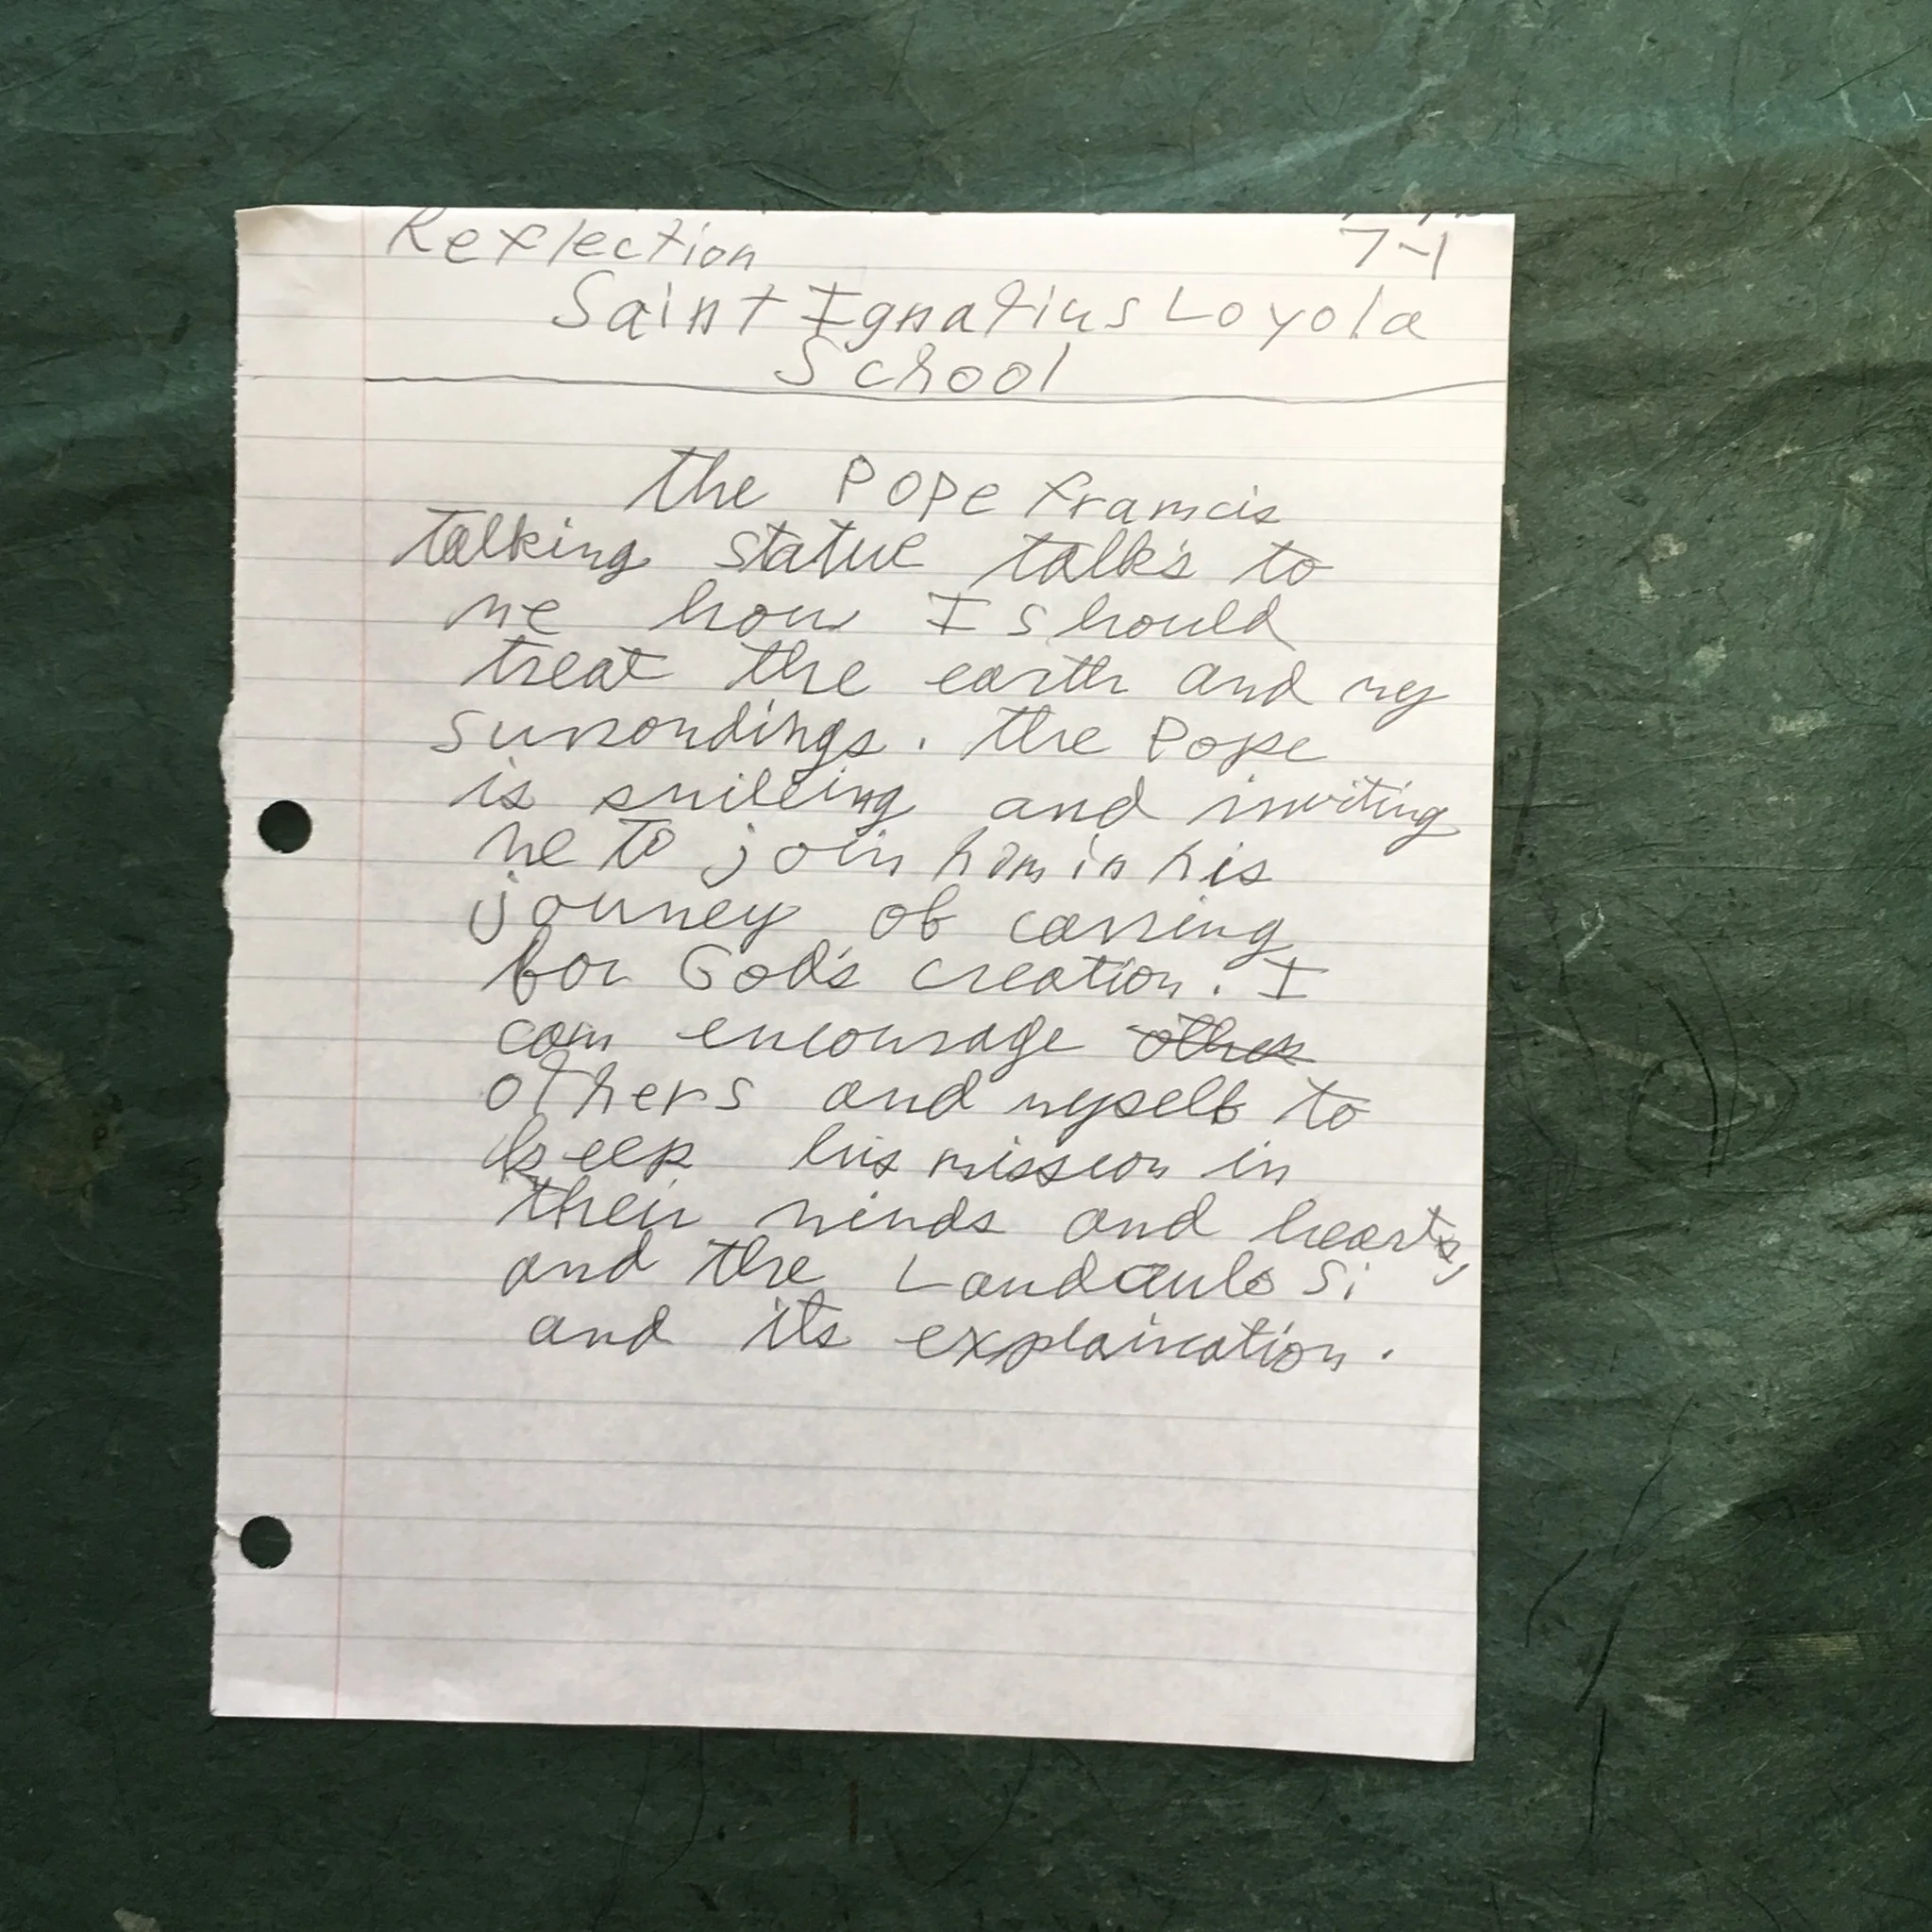 Reflection 7-1
Saint Ignatius Loyola
School
the Pope francis
talking statue talks to
me how I should
treat the earth and my
surrondings. the Pope
is smileing and inviting
me to join him in his
journey of carring
for God's creation. I
can encourage other
others and myself to
keep his mission in
their minds and hearts,
and the Landaulo Si
and its explaination.